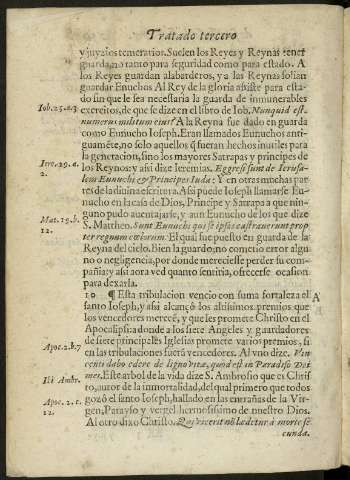 Tratado tercero
y juyzios temerarios. Suelen los Reyes y Reynas tener
guarda, no tanto para seguridad como para estado. A
los Reyes guardan alabarderos, y a las Reynas solian
guardar Enuchos Al Rey de la gloria assiste para esta-
do sin que le sea necessaria la guarda de innumerables
Iob. 25. a. 3
exercitos, de que se dize en el libro de Iob. Nunquid est
numerus militum eius? A la Reyna fue dado en guarda
como Eunucho Ioseph. Eran llamados Eunuchos anti-
guamẽte, no solo aquellos q̃ fueran hechos inutiles para
la generacion, sino los mayores Satrapas y principes de
los Reynos: y assi dize Ieremias. Egressi sunt de Ierusa-
Iere. 29. a.
2.
lem Eunuchi & Principes Iuda. Y en otras muchas par-
tes de la diuina escritura. Assi puede Ioseph llamarse Eu-
nucho en la casa de Dios, Principe y Satrapa a que nin-
guno pudo auentajarse, y aun Eunucho de los que dize
Mat. 19. b.
12.
S. Mattheo. Sunt Eunuchi qui se ipsos castrauerunt prop
ter regnum cœlorum. El qual fue puesto en guarda de la
Reyna del cielo. Bien la guardo; no cometio error algu
no o negligencia, por donde mereciesse perder su com-
pañia: y assi aora ved quanto sentiria, ofrecerse ocasion
para dexarla.
10 ¶ Esta tribulacion vencio con suma fortaleza el
santo Ioseph, y assi alcançò los altissimos premios que
los vencedores mercẽ, y que les promete Christo en el
Apocalipsi: a donde a los siete Angeles y guardadores
de siete principales Iglesias promete varios premios, si
Apoc. 2. b. 7
en las tribulaciones fuerẽ vencedores. Al vno dize. Vin
centi dabo edere de ligno vitæ, quod est in Paradiso Dei
Ibi Ambr.
mei. Este arbol de la vida dize S. Ambrosio que es Chris
to, autor de la inmortalidad, del qual primero que todos
gozò el santo Ioseph, hallado en las entrañas de la Vir-
Apoc. 2. c.
12.
gen, Parayso y vergel hermosissimo de nuestro Dios.
Al otro dixo Christo. Qui vicerit nõ lædetur à morte se-
cunda.